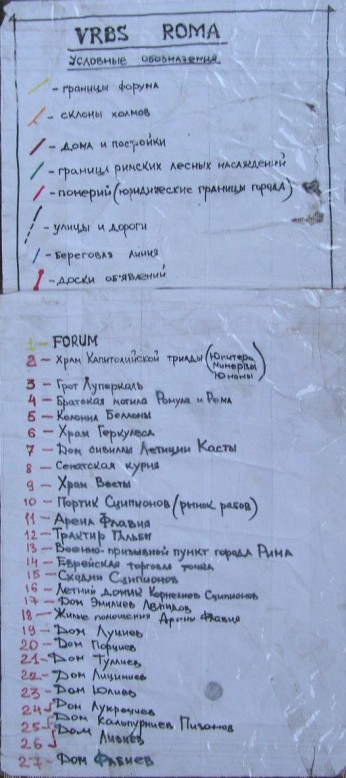 VRBS ROMA
Условные обозначения
- границы форума
- склоны холмов
- дома и постройки
- граница римских лесных насаждений
- померий (юридические границы города)
- улицы и дороги
- береговая линия
- доски объявлений
1 - FORUM
2 - Храм Капитолийской триады (Юпитера, Минервы Юноны)
3 - Грот Луперкаль
4 - Братская могила Ромула и Рема
5 - Колонна Беллоны
6 - Храм Геркулеса
7 - Дом сивиллы Летиции Касты
8 - Сенатская курия
9 - Храм Весты
10 - Портик Сципионов (рынок рабов)
11 - Арена Флавия
12 - Трактир Гальбы
13 - Военно-призывной пункт города Рима
14 - Еврейская торговая точка
15 - Сходни Сципионов
16 - Летний домик Корнелиев Сципионов
17 - Дом Эмилиев Лепидов
18 - Жилые помещения Арены Флавия
19 - Дом Луциев
20 - Дом Порциев
21 - Дом Туллиев
22 - Дом Лициниев
23 - Дом Юлиев
24 - Дом Лукрециев
25 - Дом Кальпурниев Пизонов
26 - Дом Ливиев
27 - Дом Фабиев